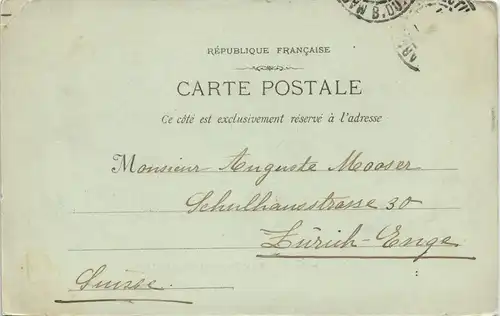 RÉPUBLIQUE FRANÇAISE
CARTE POSTALE
Ce côté est exclusivement réservé à l'adresse
Monsieur Auguste Mooser
Schulhausstrasse 30
Zürich-Enge
Suisse.